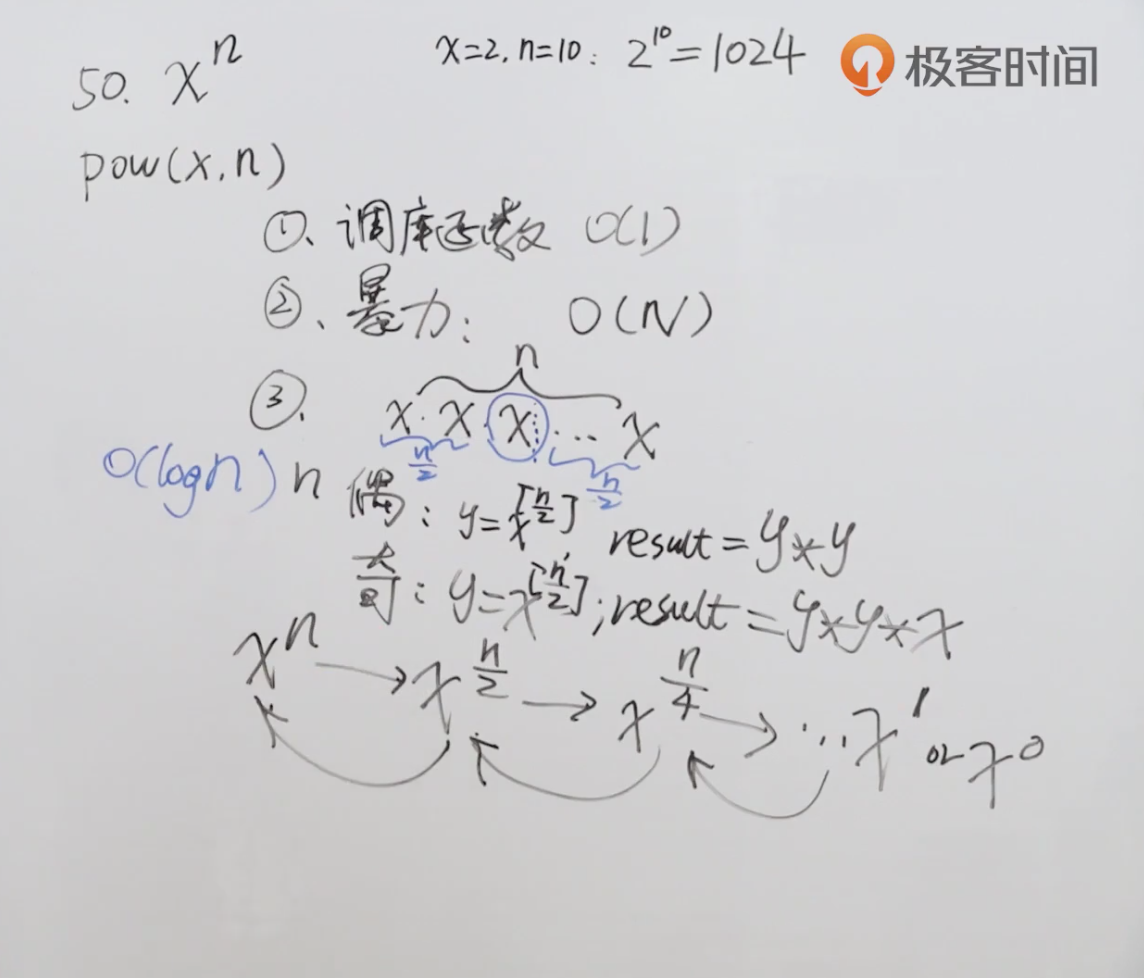 50. xⁿ x=2, n=10: 2¹⁰=1024 极客时间
pow(x,n)
①、调库函数 O(1)
②、暴力: O(N)
n
③、 x·x·x···x
n/2 n/2
O(logn) n 偶: y=x^[n/2] result=y*y
奇: y=x^[n/2]; result=y*y*x
xⁿ → x^(n/2) → x^(n/4) → ... x¹ or x⁰